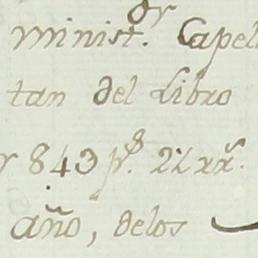 minist.or Capel
tan del Libro
y 843 p.s 22 rr.
año, delos